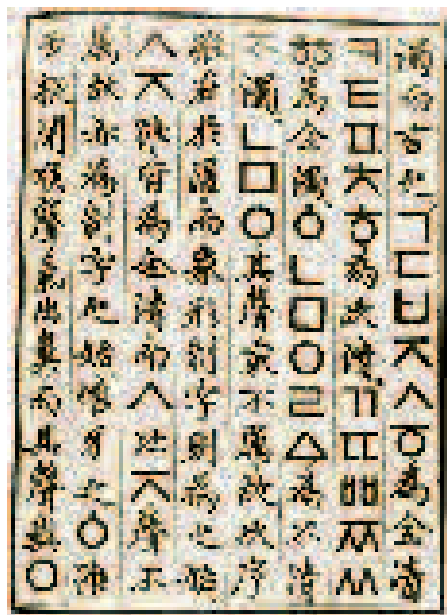 濁而言之ㄱㄷㅂㅈㅅㆆ為全清
ㅋㅌㅍㅊㅎ為次清ㄲㄸㅃㅉㅆ
ㆅ為全濁ㆁㄴㅁㅇㄹㅿ為不清
不濁ㄴㅁㅇ其聲最不厲故次序
雖在於後而象形制字則為之始
ㅅㅈ雖皆為全清而ㅅ比ㅈ聲不
厲故亦為制字之始唯牙之ㆁ雖
舌根閉喉聲氣出鼻而其聲與ㅇ